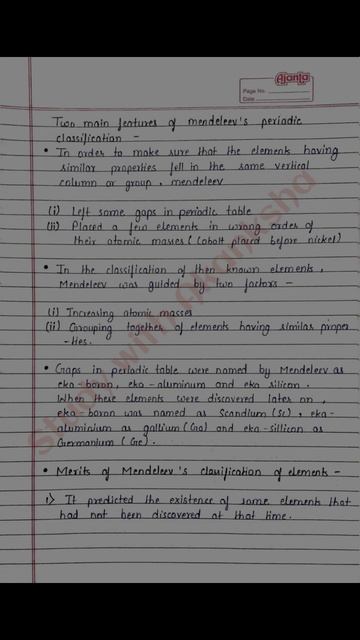 Ajanta
Page No.
Date
Two main features of mendeleev's periodic
classification -
• In order to make sure that the elements having
similar properties fell in the same vertical
column or group, mendeleev
(i) Left some gaps in periodic table
(ii) Placed a few elements in wrong order of
their atomic masses (cobalt placed before nickel)
• In the classification of then known elements,
Mendeleev was guided by two factors -
(i) Increasing atomic masses
(ii) Grouping together of elements having similar proper
-ties.
• Gaps in periodic table were named by Mendeleev as
eka-boron, eka-aluminum and eka silicon.
When these elements were discovered later on,
eka-boron was named as Scandium (Sc), eka-
aluminium as gallium (Ga) and eka-silicon as
Germanium (Ge).
• Merits of Mendeleev's classification of elements -
1) It predicted the existence of some elements that
had not been discovered at that time.
Study with Akanksha